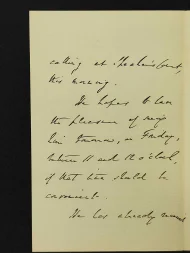 calling at St. James' Court,
this morning.
He hopes to have
the pleasure of seeing
him tomorrow, or Friday,
between 11 and 12 o'clock,
if that time should be
convenient.
He has already